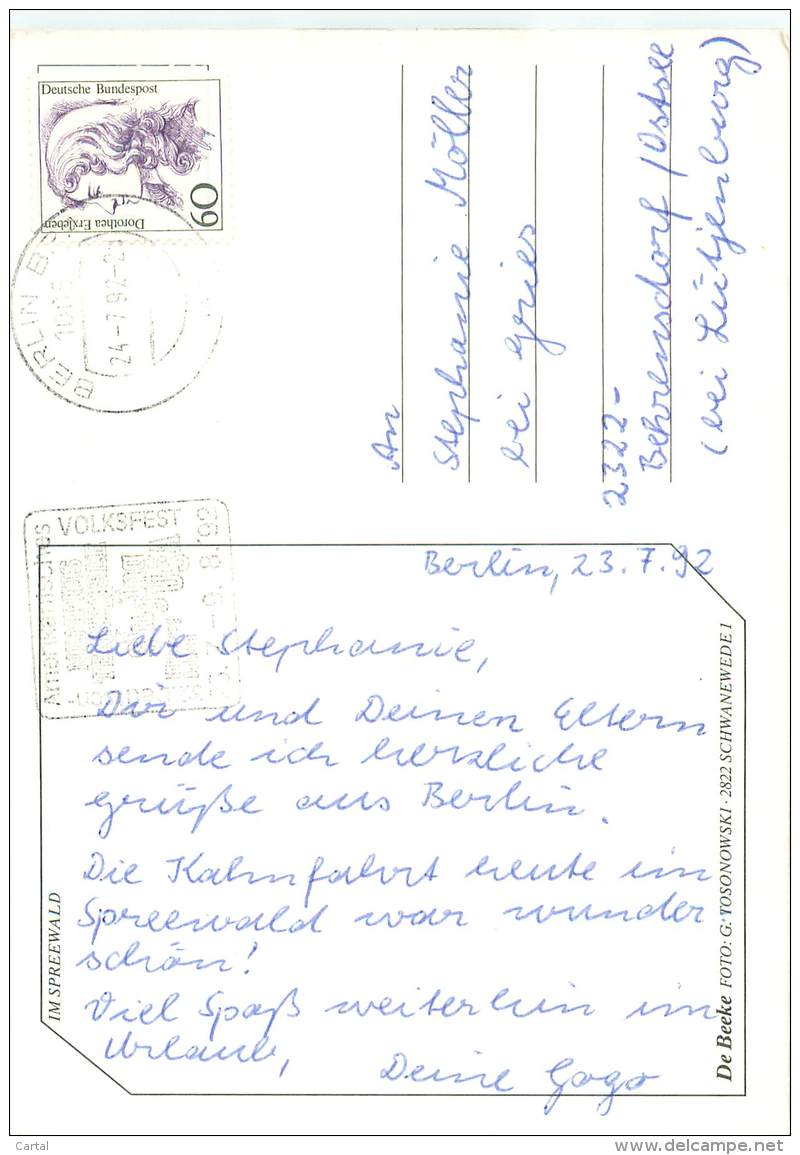 Deutsche Bundespost
60
Dorothea Erxleben
BERLIN
24-7.92-2
VOLKSFEST
9.8.92
An
Stephanie Möller
bei Gries
2322-
Behrensdorf/Ostsee
(bei Lütjenburg)
Berlin, 23.7.92
Liebe Stephanie,
Dir und Deinen Eltern
sende ich herzliche
Grüße aus Berlin.
Die Kahnfahrt heute im
Spreewald war wunder
schön!
Viel Spaß weiterhin im
Urlaub,
Deine Gogo
IM SPREEWALD
De Beeke FOTO: G. TOSONOWSKI · 2822 SCHWANEWEDE 1
Cartal
www.delcampe.net